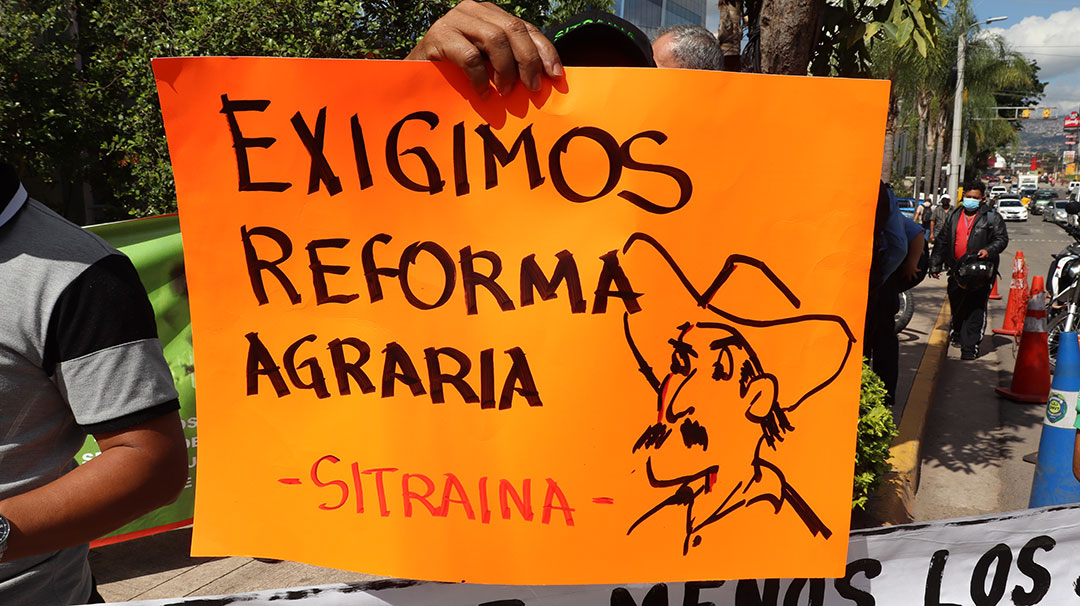 EXIGIMOS
REFORMA
AGRARIA
-SITRAINA-
MENOS LOS